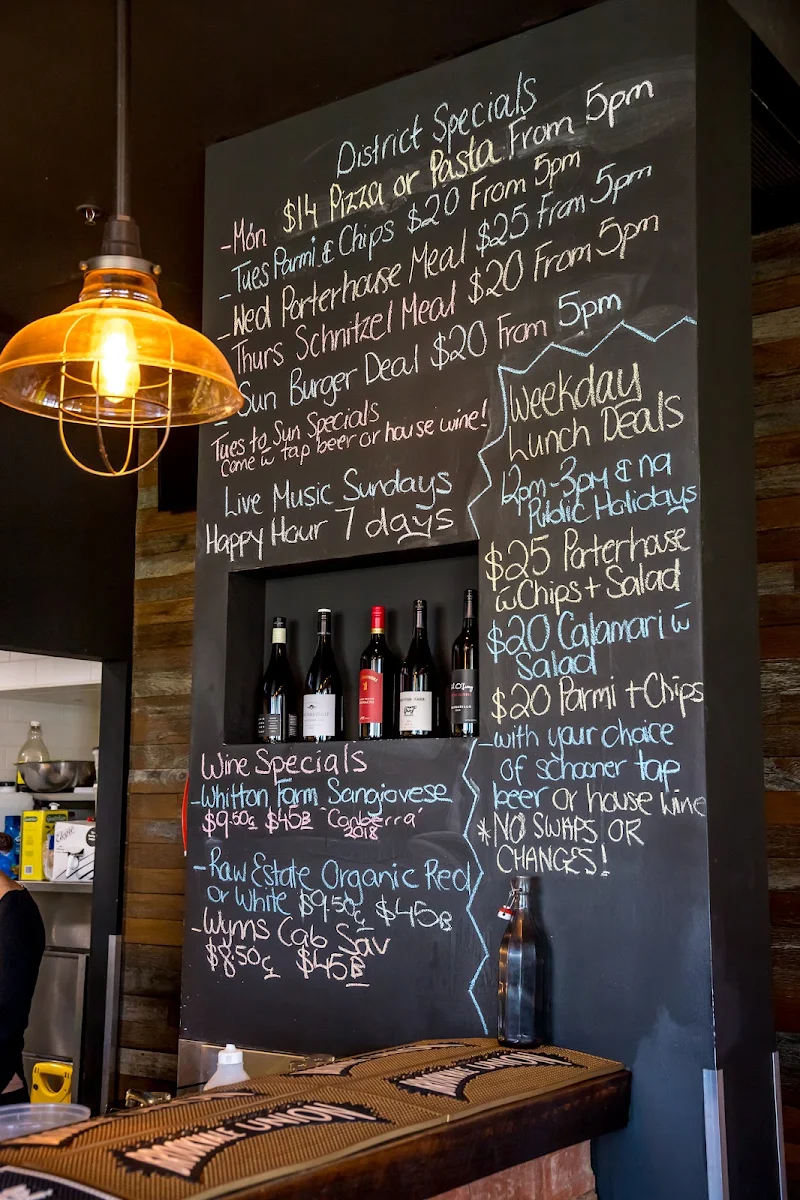 District Specials
-Mon $14 Pizza or Pasta From 5pm
-Tues Parmi & Chips $20 From 5pm
-Wed Porterhouse Meal $25 From 5pm
-Thurs Schnitzel Meal $20 From 5pm
-Sun Burger Deal $20 From 5pm
Tues to Sun Specials
come w̄ tap beer or house wine!
Live Music Sundays
Happy Hour 7 days
Weekday
Lunch Deals
12pm-3pm & na
Public Holidays
$25 Porterhouse
w̄ Chips + Salad
$20 Calamari w̄
Salad
$20 Parmi + Chips
-with your choice
of schooner tap
beer or house wine
*NO SWAPS OR
CHANGES!
Wine Specials
-Whitton Farm Sangiovese
$9.50G $45B "Canberra"
2018
-Raw Estate Organic Red
or White $9.50G $45B
-Wyns Cab Sav
$8.50G $45B